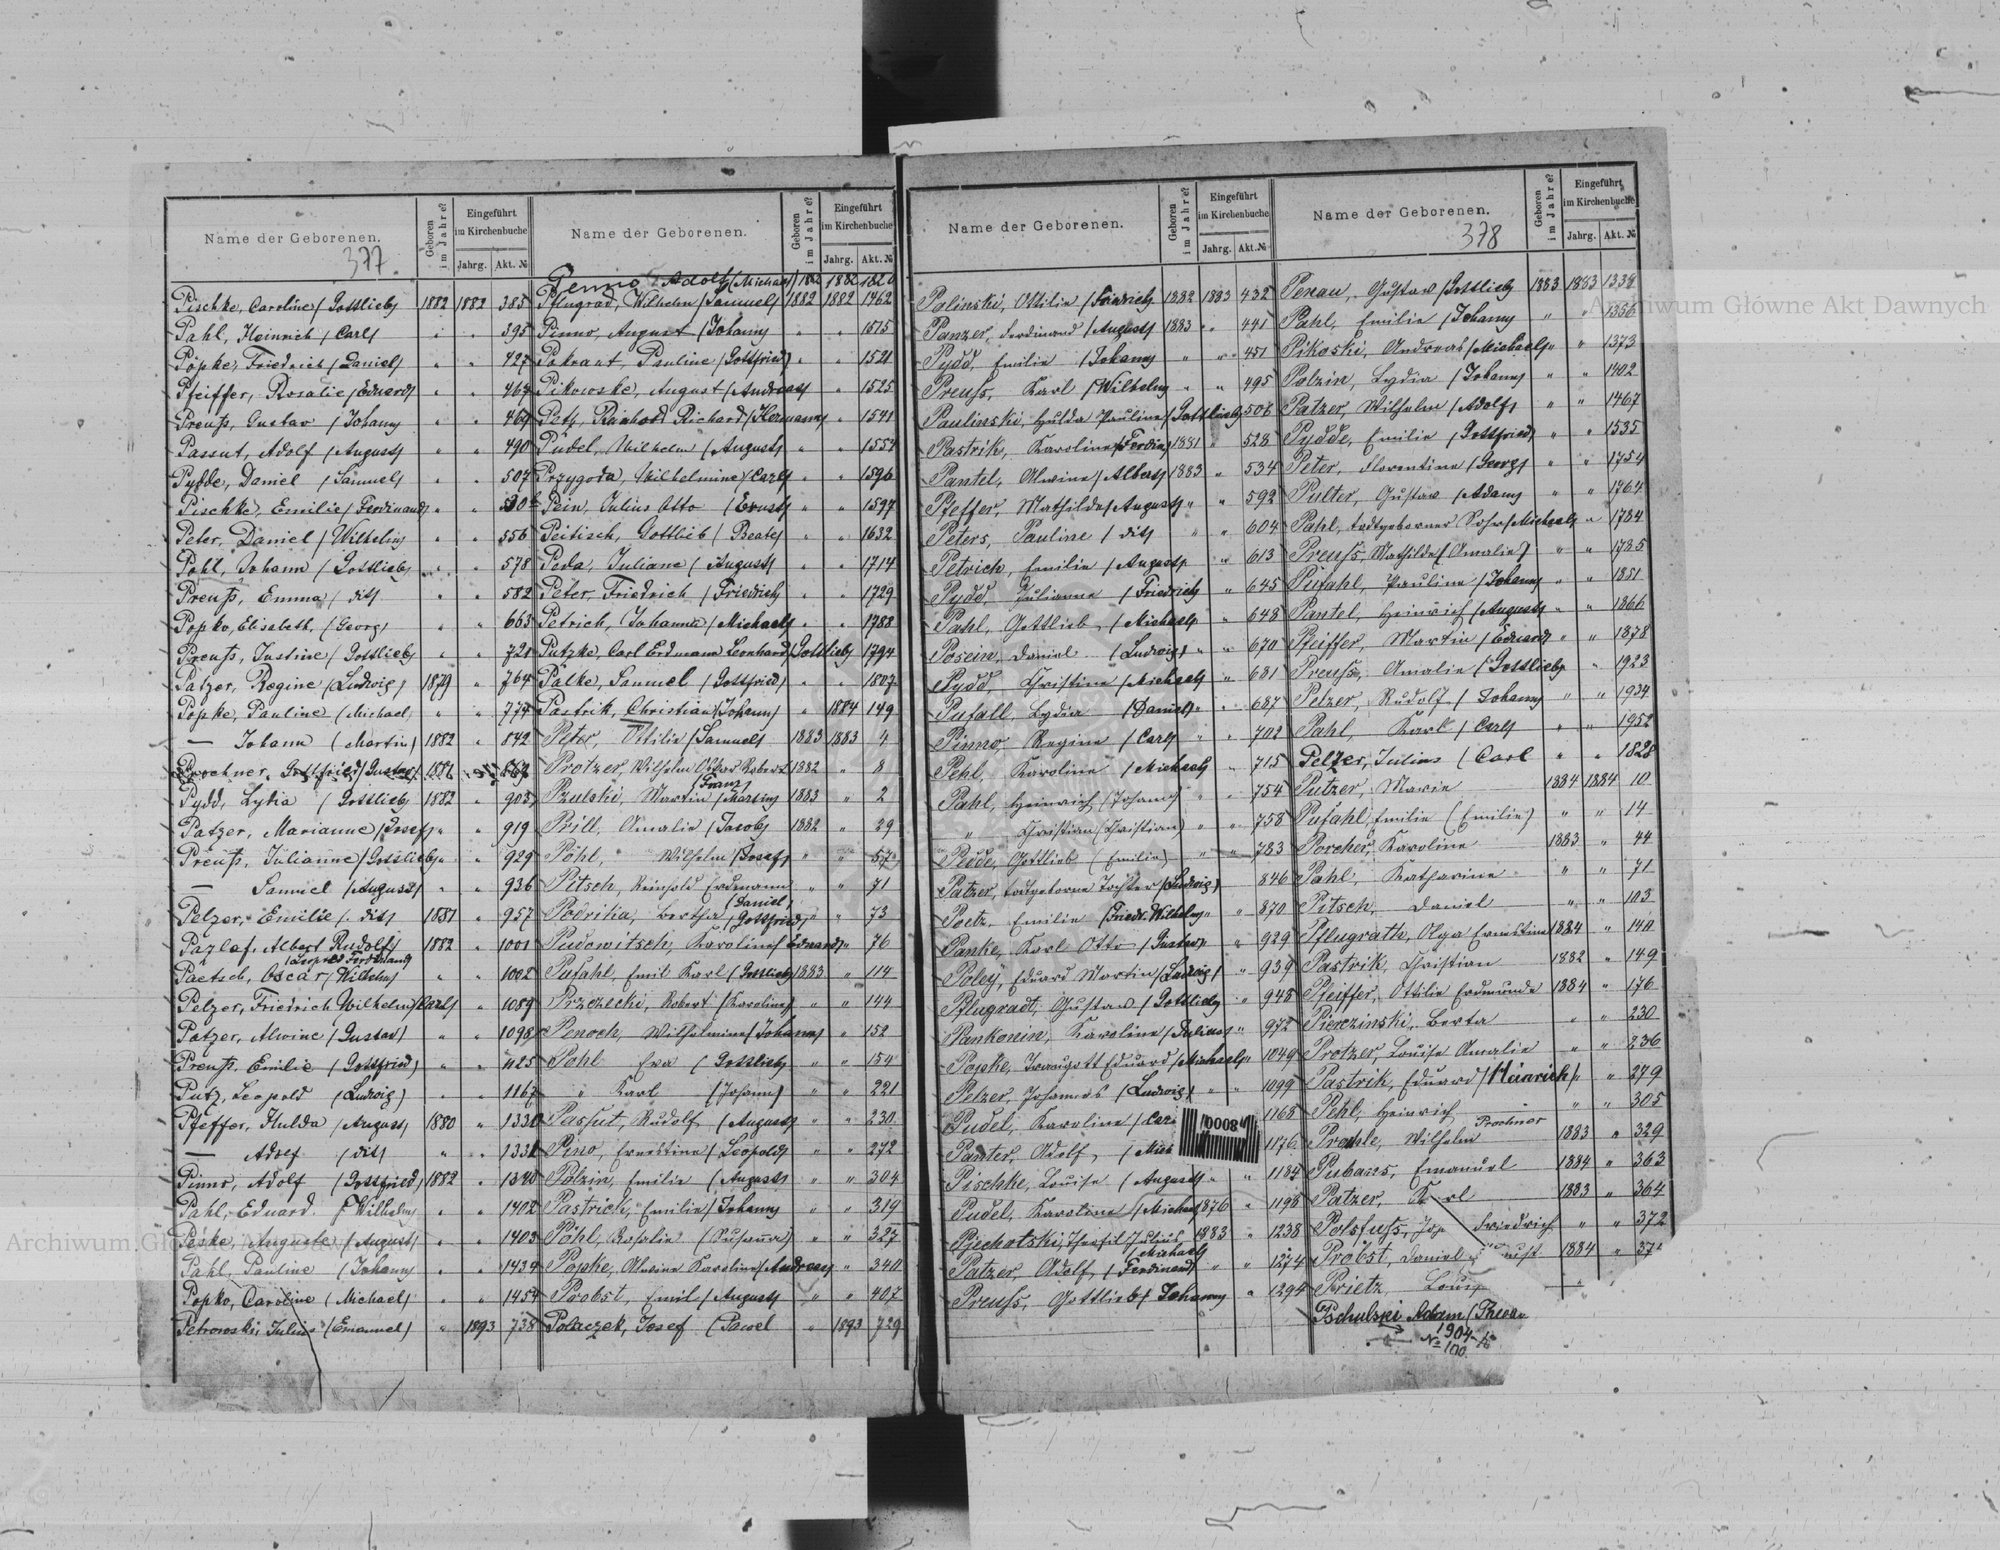 Name der Geborenen. Geboren im Jahre? Eingeführt im Kirchenbuche Jahrg. Akt. №
377.
Pischke, Caroline / Gottlieb/ 1882 1882 385
Pahl, Heinrich / Carl/ " " 395
Pöpke, Friedrich / Daniel/ " " 427
Pfeiffer, Rosalie / Eduard/ " " 463
Preuß, Gustav / Johann/ " " 469
Passut, Adolf / August/ " " 490
Pydde, Daniel / Samuel/ " " 507
Pischke, Emilie / Ferdinand/ " "
Peter, Daniel / Wilhelm/ " " 556
Pohl, Johann / Gottlieb/ " " 578
Preuß, Emma / dit/ " " 582
Popko, Elisabeth, / Georg/ " " 663
Preuß, Justine / Gottlieb/ " " 721
Patzer, Regine (Ludwig) 1879 " 764
Popke, Pauline (Michael) " " 774
— Johann (Martin) 1882 " 842
Prochner, Gottfried / Gustav/ 1882
Pydd, Lydia / Gottlieb/ 1882 " 903
Patzer, Marianne / Josef/ " " 919
Preuß, Julianne / Gottlieb/ " " 929
— Samuel / August/ " " 936
Pelzer, Emilie / dit/ 1881 " 957
Pazlaf, Albert Rudolf / Leopold Ferdinand/ 1882 " 1001
Paetsch, Oscar / Wilhelm/ " " 1002
Pelzer, Friedrich Wilhelm / Carl/ " 1089
Patzer, Alwine (Gustav) " " 1098
Preuß, Emilie (Gottfried) " " 1125
Putz, Leopold (Ludwig) " " 1167
Pfeffer, Hulda / August/ 1880 " 1330
— Adolf / dit/ " " 1331
Pinno, Adolf (Gottfried) 1882 " 1340
Pahl, Eduard / Wilhelm/ " " 1402
Peske, Auguste / August/ " " 1403
Pahl, Pauline / Johann/ " " 1434
Popko, Caroline / Michael/ " " 1454
Petrowski, Julius (Emanuel) " 1893 738
Name der Geborenen. Geboren im Jahre? Eingeführt im Kirchenbuche Jahrg. Akt. №
Penno, Adolf (Michael) 1882 1882 1820
Pflugrad, Wilhelm / Samuel/ 1882 1882 1462
Pinno, August / Johann/ " " 1515
Pakrant, Pauline (Gottfried) " " 1521
Pikowske, August / Andreas/ " 1525
Petz, Reinhold Richard / Hermann/ " 1541
Pudel, Wilhelm / August/ " " 1554
Przygoda, Wilhelmine / Carl/ " " 1596
Pein, Julius Otto / Ernst/ " " 1597
Peitisch, Gottlieb / Beate/ " " 1632
Peda, Juliane / August/ " " 1714
Peter, Friedrich / Friedrich/ " " 1729
Petrich, Johanna / Michael/ " " 1788
Putzke, Carl Erdmann Leonhard / Gottlieb/ 1794
Palke, Samuel (Gottfried) " " 1807
Pastrik, Christian / Johann/ " 1884 149
Peter, Ottilie / Samuel/ 1883 1883 4
Protzer, Wilhelm Oskar Robert / Franz/ 1882 " 8
Pzulski, Martin / Martin/ 1883 " 2
Prill, Amalie / Jacob/ 1882 " 29
Pöhl, Wilhelm / Josef/ " " 57
Pitsch, Reinhold Erdmann / Daniel/ " " 71
Podritia, Bertha / Gottfried/ " " 73
Pudowitsch, Karoline / Eduard/ " 76
Pufahl, Emil Karl / Gottlieb/ 1883 " 114
Przczecki, Robert (Karoline) " " 144
Penoch, Wilhelmine / Johann/ " 152
Pohl Eva / Gottlieb/ " " 154
" Karl (Johann) " " 221
Passut, Rudolf / August/ " " 230
Pino, Ernestine / Leopold/ " " 272
Polzin, Emilie / August/ " " 304
Pastrich, Emilie / Johann/ " " 319
Pöhl, Rosalie (Susanna) " " 323
Popke, Alwine Karoline / Andreas/ " 340
Probst, Emil / August/ " " 407
Polaczek, Josef (Pawel " 1893 729
Name der Geborenen. Geboren im Jahre? Eingeführt im Kirchenbuche Jahrg. Akt. №
Palinski, Ottilie / Friedrich/ 1882 1883 432
Panzer, Ferdinand / August/ 1883 " 441
Pydd, Emilie / Johann/ " " 451
Preuß, Karl / Wilhelm/ " " 495
Paulinski, Hulda Pauline / Gottlieb/ 506
Pastrik, Karoline / Ferdin/ 1881 " 528
Pantel, Alwine / Albert/ 1883 " 534
Pfeffer, Mathilde / August/ " " 592
Peters, Pauline / dit/ " " 604
Petrich, Emilie / August/ " " 613
Pydd, Julianne / Friedrich/ " 645
Pahl, Gottlieb / Michael/ " 648
Posein, Daniel (Ludwig) " " 670
Pydd, Christine / Michael/ " 681
Pufall, Lydia / Daniel/ " " 687
Pinno, Regine / Carl/ " " 702
Pehl, Karoline / Michael/ " 715
Pahl, Heinrich (Johann) " " 754
" Christian (Christian) " " 758
Pedde, Gottlieb (Emilie) " " 783
Patzer, todtgeborne Tochter (Ludwig) 846
Poetz, Emilie (Friedr. Wilhelm) " " 870
Panke, Karl Otto / Gustav/ " 929
Poley, Eduard Martin (Ludwig) " 939
Pflugradt, Gustav / Gottlieb/ " 948
Pankonin, Karoline / Julius/ " 972
Popke, Traugott Eduard / Michael/ " 1049
Pelzer, Johannes (Ludwig) " " 1099
Pudel, Karoline / Car 1168
00008
Panter, Adolf, / Mich 1176
Pischke, Louise / August/ " " 1184
Pudel, Karoline / Michael/ 1876 " 1198
Pjechotski, Theofil Julius / Michael/ 1883 " 1238
Patzer, Adolf / Ferdinand/ " " 1274
Preuß, Gottlieb / Johann/ " 1294
Name der Geborenen. Geboren im Jahre? Eingeführt im Kirchenbuche Jahrg. Akt. №
378
Penau, Gustav / Gottlieb/ 1883 1883 1338
Pahl, Emilie / Johann/ " " 1356
Pikoski, Andreas / Michael/ " " 1373
Polzin, Lydia / Johann/ " " 1402
Patzer, Wilhelm / Adolf/ " " 1467
Pydde, Emilie / Gottfried/ " " 1535
Peter, Florentine / Georg/ " " 1754
Pulter, Gustav / Adam/ " " 1764
Pahl, todtgeborner Sohn / Michael/ " 1784
Preuß, Mathilde (Amalie) " " 1785
Pufahl, Pauline / Johann/ " " 1851
Pantel, Heinrich / August/ " " 1866
Pfeiffer, Martin / Eduard/ " " 1878
Preuß, Amalie / Gottlieb/ " " 1923
Petzer, Rudolf / Johann/ " " 1934
Pahl, Karl / Carl/ " " 1952
Pelzer, Julius / Carl " " 1828
Putzer, Marie 1884 1884 10
Pufahl, Emilie (Emilie) " " 14
Porcher, Karoline 1883 " 44
Pahl, Katharine " " 71
Pitsch, Daniel " " 103
Pflugrath, Olga Ernestine 1884 " 140
Pastrik, Christian 1882 " 149
Pfeiffer, Ottilie Erdmunde 1884 " 176
Pierczinski, Berta " " 230
Protzer, Louise Amalie " " 236
Pastrik, Eduard / Heinrich/ " " 279
Pehl, Heinrich — " " 305
Prochle, Wilhelm Prochner 1883 " 329
Pubans, Emanuel 1884 " 363
Patzer, Karl 1883 " 364
Potsfuß, Joh Friedrich " " 372
Probst, Daniel August 1884 " 37
Prietz, Louis
Pschulski Adam
1904
№ 100.
Archiwum Główne Akt Dawnych
Archiwum Główne Akt Dawnych